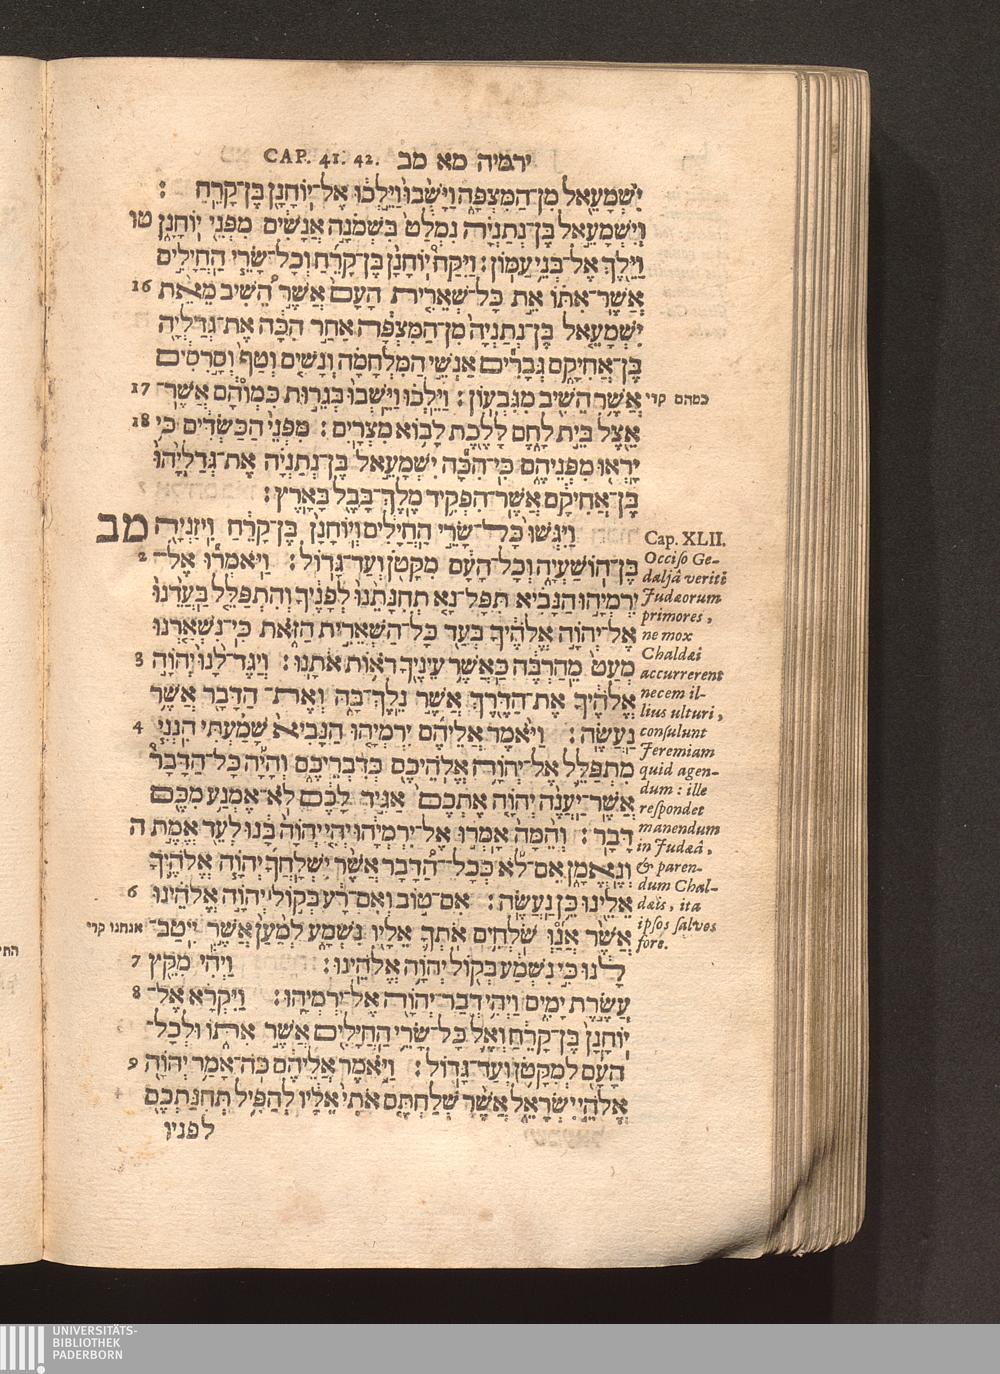 ירמיה מא מב CAP. 41. 42.
יִשְׁמָעֵאל מִן־הַמִּצְפָּה וַיָּשֻׁבוּ וַיֵּלְכוּ אֶל־יוֹחָנָן בֶּן־קָרֵחַ :
וְיִשְׁמָעֵאל בֶּן־נְתַנְיָה נִמְלַט בִּשְׁמֹנָה אֲנָשִׁים מִפְּנֵי יוֹחָנָן טו
וַיֵּלֶךְ אֶל־בְּנֵי עַמּוֹן : וַיִּקַּח יוֹחָנָן בֶּן־קָרֵחַ וְכָל־שָׂרֵי הַחֲיָלִים
אֲשֶׁר־אִתּוֹ אֵת כָּל־שְׁאֵרִית הָעָם אֲשֶׁר הֵשִׁיב מֵאֵת 16
יִשְׁמָעֵאל בֶּן־נְתַנְיָה מִן־הַמִּצְפָּה אַחַר הִכָּה אֶת־גְּדַלְיָה
בֶּן־אֲחִיקָם גְּבָרִים אַנְשֵׁי הַמִּלְחָמָה וְנָשִׁים וְטַף וְסָרִסִים
אֲשֶׁר הֵשִׁיב מִגִּבְעוֹן : וַיֵּלְכוּ וַיֵּשְׁבוּ בְּגֵרוּת כִּמְוֹהָם אֲשֶׁר־ 17
כמהם קרי
אֵצֶל בֵּית לָחֶם לָלֶכֶת לָבוֹא מִצְרָיִם : מִפְּנֵי הַכַּשְׂדִּים כִּי 18
יָרְאוּ מִפְּנֵיהֶם כִּי־הִכָּה יִשְׁמָעֵאל בֶּן־נְתַנְיָה אֶת־גְּדַלְיָהוּ
בֶּן־אֲחִיקָם אֲשֶׁר־הִפְקִיד מֶלֶךְ־בָּבֶל בָּאָרֶץ :
וַיִּגְּשׁוּ כָּל־שָׂרֵי הַחֲיָלִים וְיוֹחָנָן בֶּן־קָרֵחַ וִיזַנְיָה מב
בֶּן־הוֹשַׁעְיָה וְכָל־הָעָם מִקָּטֹן וְעַד־גָּדוֹל : וַיֹּאמְרוּ אֶל־ 2
יִרְמְיָהוּ הַנָּבִיא תִּפָּל־נָא תְחִנָּתֵנוּ לְפָנֶיךָ וְהִתְפַּלֵּל בַּעֲדֵנוּ
אֶל־יְהוָה אֱלֹהֶיךָ בְּעַד כָּל־הַשְּׁאֵרִית הַזֹּאת כִּי־נִשְׁאַרְנוּ
מְעַט מֵהַרְבֵּה כַּאֲשֶׁר עֵינֶיךָ רֹאוֹת אֹתָנוּ : וְיַגֶּד־לָנוּ יְהוָה 3
אֱלֹהֶיךָ אֶת־הַדֶּרֶךְ אֲשֶׁר נֵלֶךְ־בָּהּ וְאֶת־הַדָּבָר אֲשֶׁר
נַעֲשֶׂה : וַיֹּאמֶר אֲלֵיהֶם יִרְמְיָהוּ הַנָּבִיא שָׁמַעְתִּי הִנְנִי 4
מִתְפַּלֵּל אֶל־יְהוָה אֱלֹהֵיכֶם כְּדִבְרֵיכֶם וְהָיָה כָּל־הַדָּבָר
אֲשֶׁר־יַעֲנֶה יְהוָה אֶתְכֶם אַגִּיד לָכֶם לֹא־אֶמְנַע מִכֶּם
דָּבָר : וְהֵמָּה אָמְרוּ אֶל־יִרְמְיָהוּ יְהִי יְהוָה בָּנוּ לְעֵד אֱמֶת ה
וְנֶאֱמָן אִם־לֹא כְּכָל־הַדָּבָר אֲשֶׁר יִשְׁלָחֲךָ יְהוָה אֱלֹהֶיךָ
אֵלֵינוּ כֵּן נַעֲשֶׂה : אִם־טוֹב וְאִם־רָע בְּקוֹל יְהוָה אֱלֹהֵינוּ 6
אֲשֶׁר אֲנַוּ שֹׁלְחִים אֹתְךָ אֵלָיו נִשְׁמָע לְמַעַן אֲשֶׁר יִיטַב־
אנחנו קרי
לָנוּ כִּי נִשְׁמַע בְּקוֹל יְהוָה אֱלֹהֵינוּ : וַיְהִי מִקֵּץ 7
עֲשֶׂרֶת יָמִים וַיְהִי דְבַר־יְהוָה אֶל־יִרְמְיָהוּ : וַיִּקְרָא אֶל־ 8
יוֹחָנָן בֶּן־קָרֵחַ וְאֶל כָּל־שָׂרֵי הַחֲיָלִים אֲשֶׁר אִתּוֹ וּלְכָל־
הָעָם לְמִקָּטֹן וְעַד־גָּדוֹל : וַיֹּאמֶר אֲלֵיהֶם כֹּה־אָמַר יְהוָה 9
אֱלֹהֵי יִשְׂרָאֵל אֲשֶׁר שְׁלַחְתֶּם אֹתִי אֵלָיו לְהַפִּיל תְּחִנַּתְכֶם
לפניו
Cap. XLII.
Occiso Ge-
daljâ veriti
Judæorum
primores,
ne mox
Chaldæi
accurrerent
necem il-
lius ulturi,
consulunt
Jeremiam
quid agen-
dum: ille
respondet
manendum
in Judæâ,
& paren-
dum Chal-
dæis, ita
ipsos salvos
fore.
UNIVERSITÄTS-
BIBLIOTHEK
PADERBORN